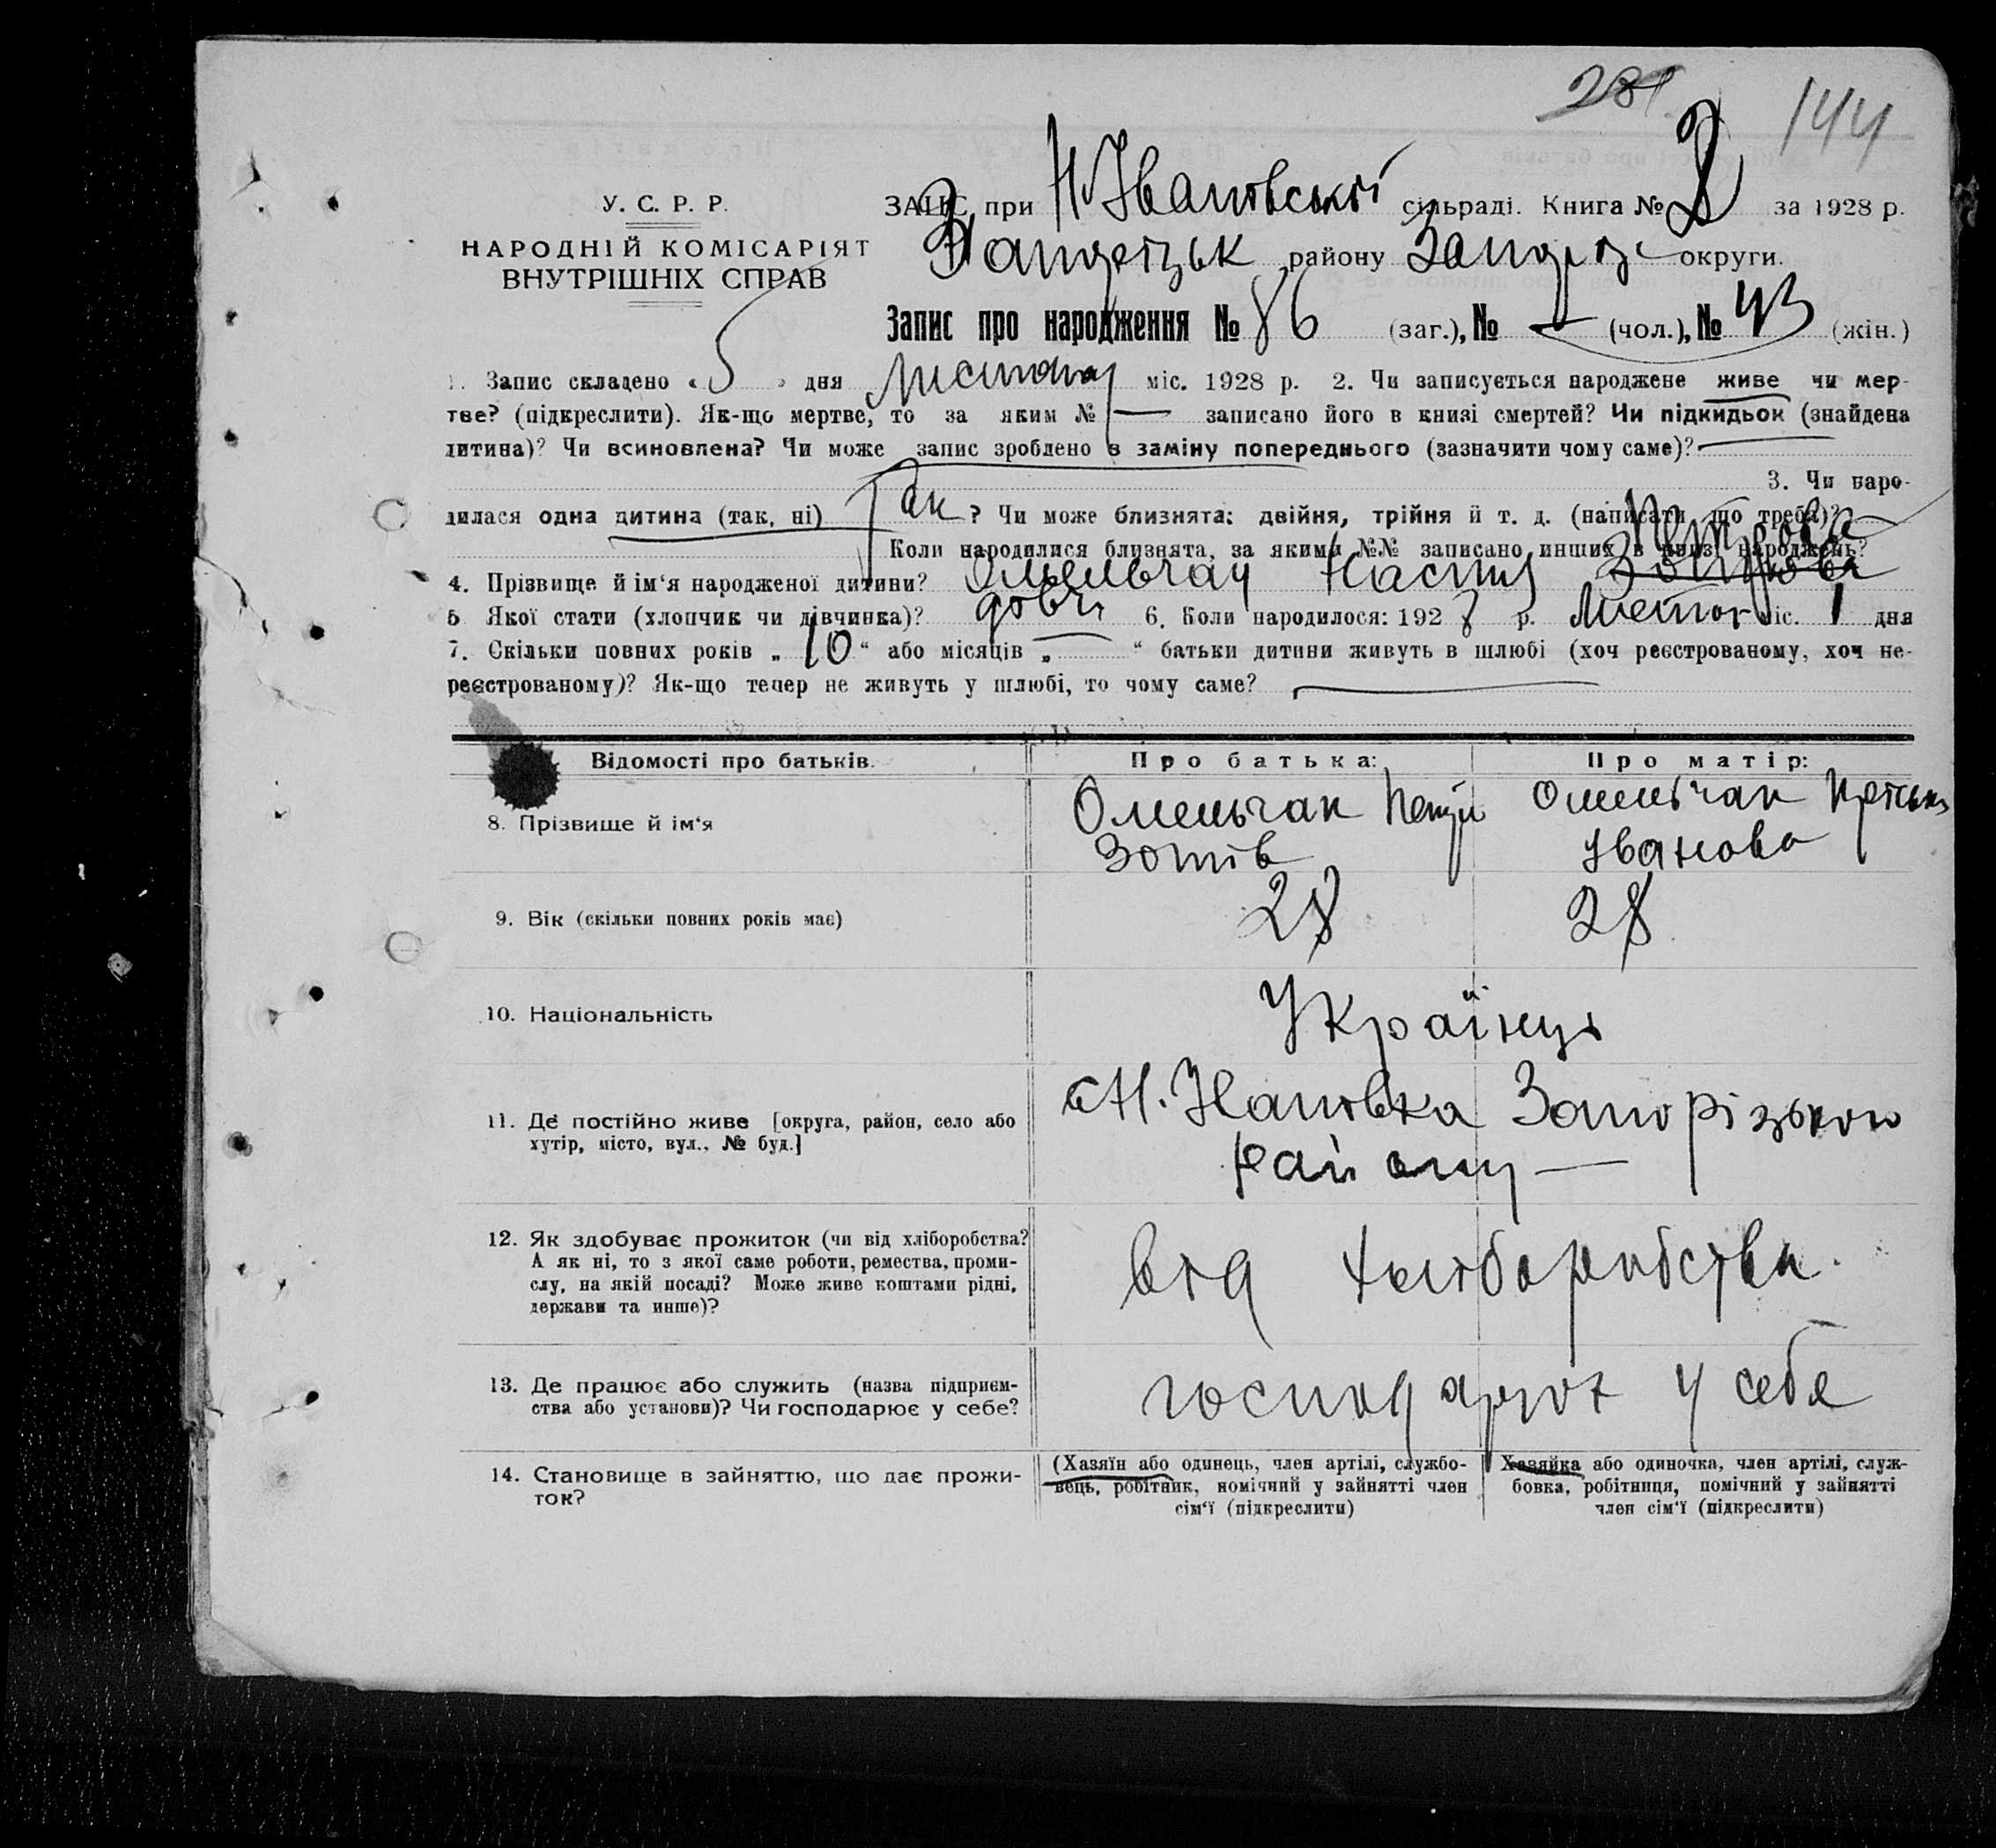 281
144
У. С. Р. Р.
НАРОДНІЙ КОМІСАРІЯТ
ВНУТРІШНІХ СПРАВ
ЗАПИС при Н.Івановській сільраді. Книга № 2 за 1928 р.
району округи.
Запис про народження № 86 (заг.), № — (чол.), № 43 (жін.)
1. Запис складено « 5 » дня міс. 1928 р. 2. Чи записується народжене живе чи мер-
тве? (підкреслити). Як-що мертве, то за яким № — записано його в книзі смертей? Чи підкидьок (знайдена
дитина)? Чи всиновлена? Чи може запис зроблено в заміну попереднього (зазначити чому саме)? —
3. Чи наро-
дилася одна дитина (так, ні) Так ? Чи може близнята: двійня, трійня й т. д. (написати що треба)?
Коли народилися близнята, за якими №№ записано инших в книзі народжень?
4. Прізвище й ім‘я народженої дитини? Омельчак Настя Зотова Петрова
5 Якої стати (хлопчик чи дівчинка)? дівч. 6. Коли народилося: 1928 р. Листоп міс. 1 дня
7. Скільки повних років „ 10 “ або місяців „ — “ батьки дитини живуть в шлюбі (хоч реєстрованому, хоч не-
реєстрованому)? Як-що тепер не живуть у шлюбі, то чому саме? —
Відомості про батьків. Про батька: Про матір:
8. Прізвище й ім‘я Омельчак Петро Омельчак
Зотів Іванова
9. Вік (скільки повних років має) 28 28
10. Національність Українці
11. Де постійно живе [округа, район, село або
хутір, місто, вул., № буд.]
с Н. Івановка Запорізького
району —
12. Як здобуває прожиток (чи від хліборобства?
А як ні, то з якої саме роботи, ремества, проми-
слу, на якій посаді? Може живе коштами рідні,
держави та инше)?
від хліборобства.
13. Де працює або служить (назва підприєм-
ства або установи)? Чи господарює у себе?
у себе
14. Становище в зайняттю, що дає прожи-
ток?
(Хазяїн або одинець, член артілі, службо-
вець, робітник, помічний у зайнятті член
сім‘ї (підкреслити)
Хазяйка або одиночка, член артілі, служ-
бовка, робітниця, помічний у зайнятті
член сім‘ї (підкреслити)